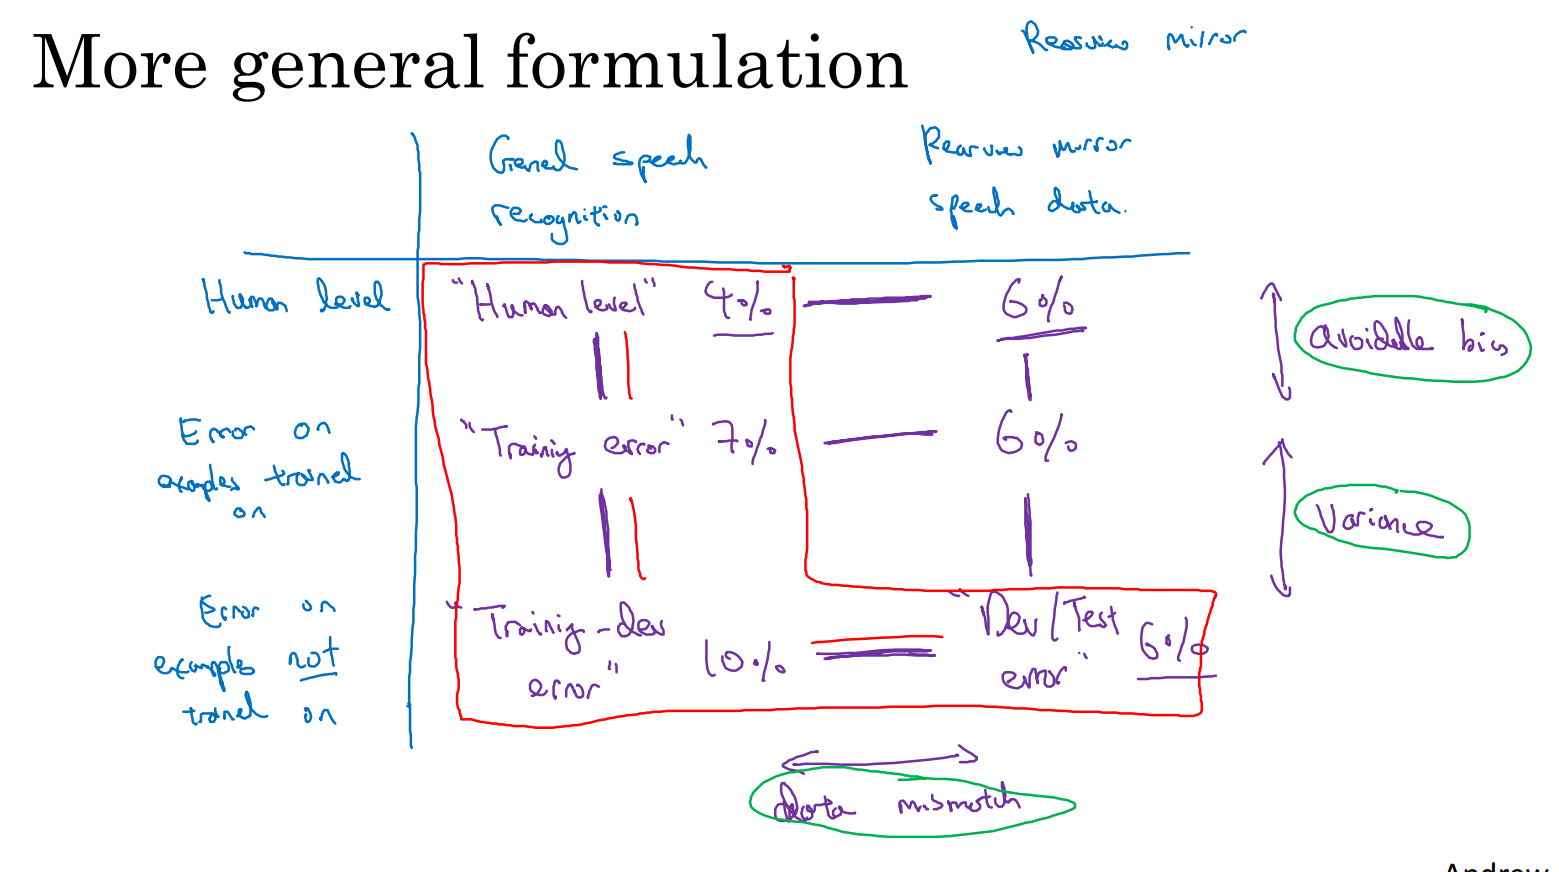 More general formulation
Rearview mirror
General speech
recognition
Rearview mirror
speech data.
Human level
"Human level" 4%
6%
avoidable bias
Error on
examples trained
on
"Training error" 7%
6%
Variance
Error on
examples not
trained on
"Training-dev
error" 10%
"Dev/Test
error" 6%
data mismatch
Andrew